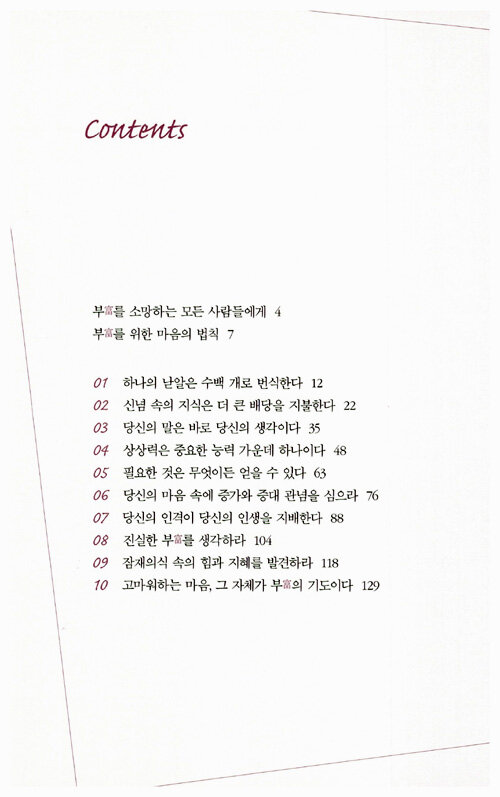 Contents
부富를 소망하는 모든 사람들에게 4
부富를 위한 마음의 법칙 7
01 하나의 낟알은 수백 개로 번식한다 12
02 신념 속의 지식은 더 큰 배당을 지불한다 22
03 당신의 말은 바로 당신의 생각이다 35
04 상상력은 중요한 능력 가운데 하나이다 48
05 필요한 것은 무엇이든 얻을 수 있다 63
06 당신의 마음 속에 증가와 증대 관념을 심으라 76
07 당신의 인격이 당신의 인생을 지배한다 88
08 진실한 부富를 생각하라 104
09 잠재의식 속의 힘과 지혜를 발견하라 118
10 고마워하는 마음, 그 자체가 부富의 기도이다 129